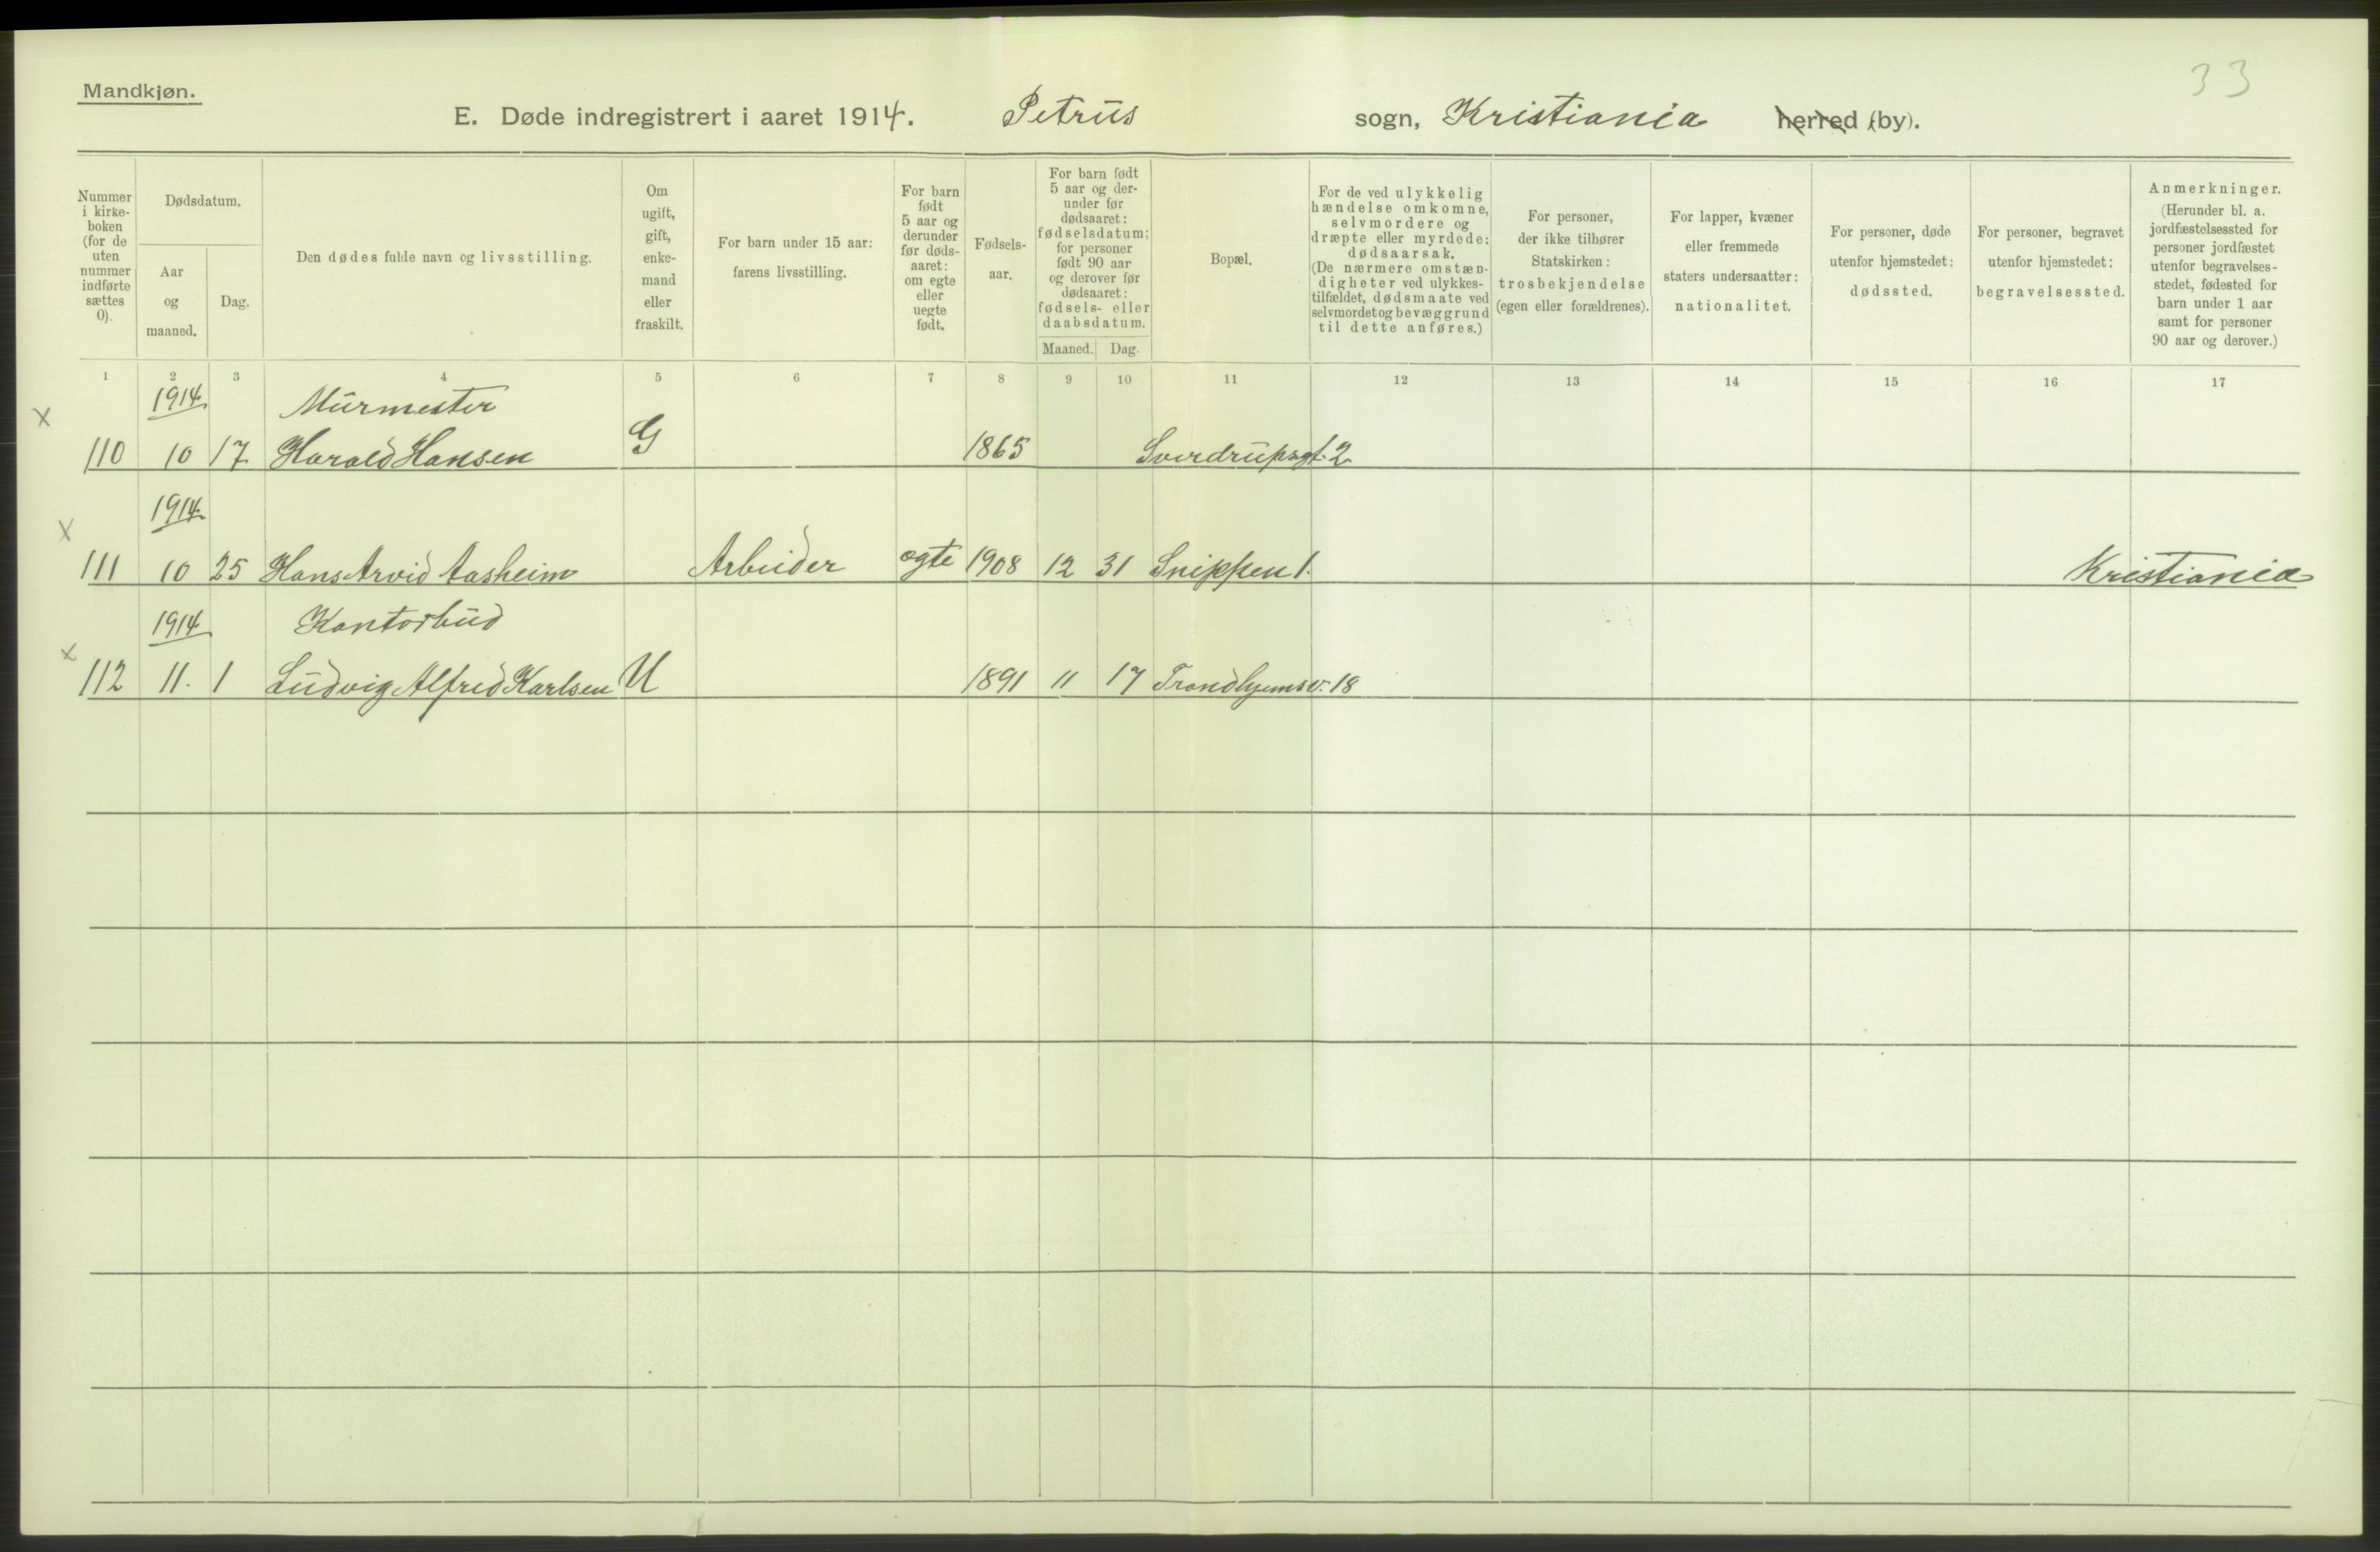 33
Mandkjøn.
E. Døde indregistrert i aaret 1914. Petrus sogn, Kristiania herred (by).
Nummer i kirke- boken (for de uten nummer indførte sættes 0).
Dødsdatum.
Aar og maaned.
Dag.
Den dødes fulde navn og livsstilling.
Om ugift, gift, enke- mand eller fraskilt.
For barn under 15 aar: farens livsstilling.
For barn født 5 aar og derunder før døds- aaret: om egte eller uegte født.
Fødsels- aar.
For barn født 5 aar og der- under før dødsaaret: fødselsdatum; for personer født 90 aar og derover før dødsaaret: fødsels- eller daabsdatum.
Maaned. Dag.
Bopæl.
For de ved ulykkelig hændelse omkomne, selvmordere og dræpte eller myrdede: dødsaarsak. (De nærmere omstæn- digheter ved ulykkes- tilfældet, dødsmaate ved selvmordet og bevæggrund til dette anføres.)
For personer, der ikke tilhører Statskirken: trosbekjendelse (egen eller forældrenes).
For lapper, kvæner eller fremmede staters undersaatter: nationalitet.
For personer, døde utenfor hjemstedet: dødssted.
For personer, begravet utenfor hjemstedet: begravelsessted.
Anmerkninger. (Herunder bl. a. jordfæstelsessted for personer jordfæstet utenfor begravelses- stedet, fødested for barn under 1 aar samt for personer 90 aar og derover.)
1 2 3 4 5 6 7 8 9 10 11 12 13 14 15 16 17
x 1914 Murmester
110 10 17 Harald Hansen G 1865 Sverdrupsgt. 2
x 1914
111 10 25 Hans Arvid Aasheim Arbeider egte 1908 12 31 Snippen 1. Kristiania
1914 Kontorbud
x 112 11. 1 Ludvig Alfred Karlsen U 1891 11 17 Trondhjemsv. 18